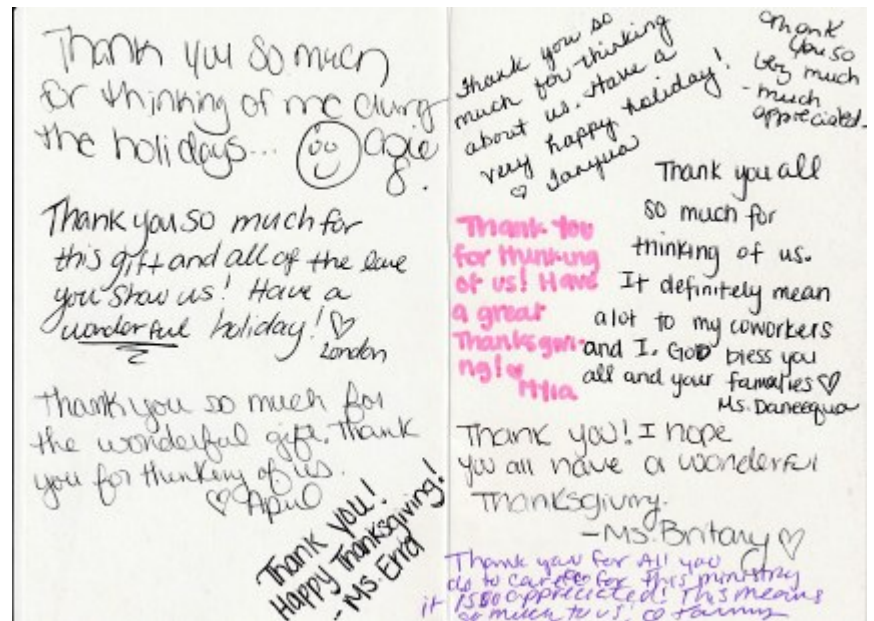 Thank you so much
for thinking of me during
the holidays...
Thank you so much for
this gift and all of the love
you show us! Have a
wonderful holiday! ♡
London
Thank you so much for
the wonderful gift. Thank
you for thinking of us.
♡ April
Thank you!
Happy Thanksgiving!
- Ms. Errol
Thank you so
much for thinking
about us. Have a
very happy holiday!
♡ Tanyua
Thank
you so
very much
- much
appreciated.
Thank You
for thinking
of us! Have
a great
Thanksgivi-
ng! ♥
Thank you all
so much for
thinking of us.
It definitely mean
alot to my coworkers
and I. GoD bless you
all and your families ♡
Ms. Daneequa
Thank you! I hope
you all have a wonderful
Thanksgiving.
- Ms. Britany ♡
Thank you for All you
do to care for this ministry
it is so appreciated! This means
so much to us! ♡ Tammy